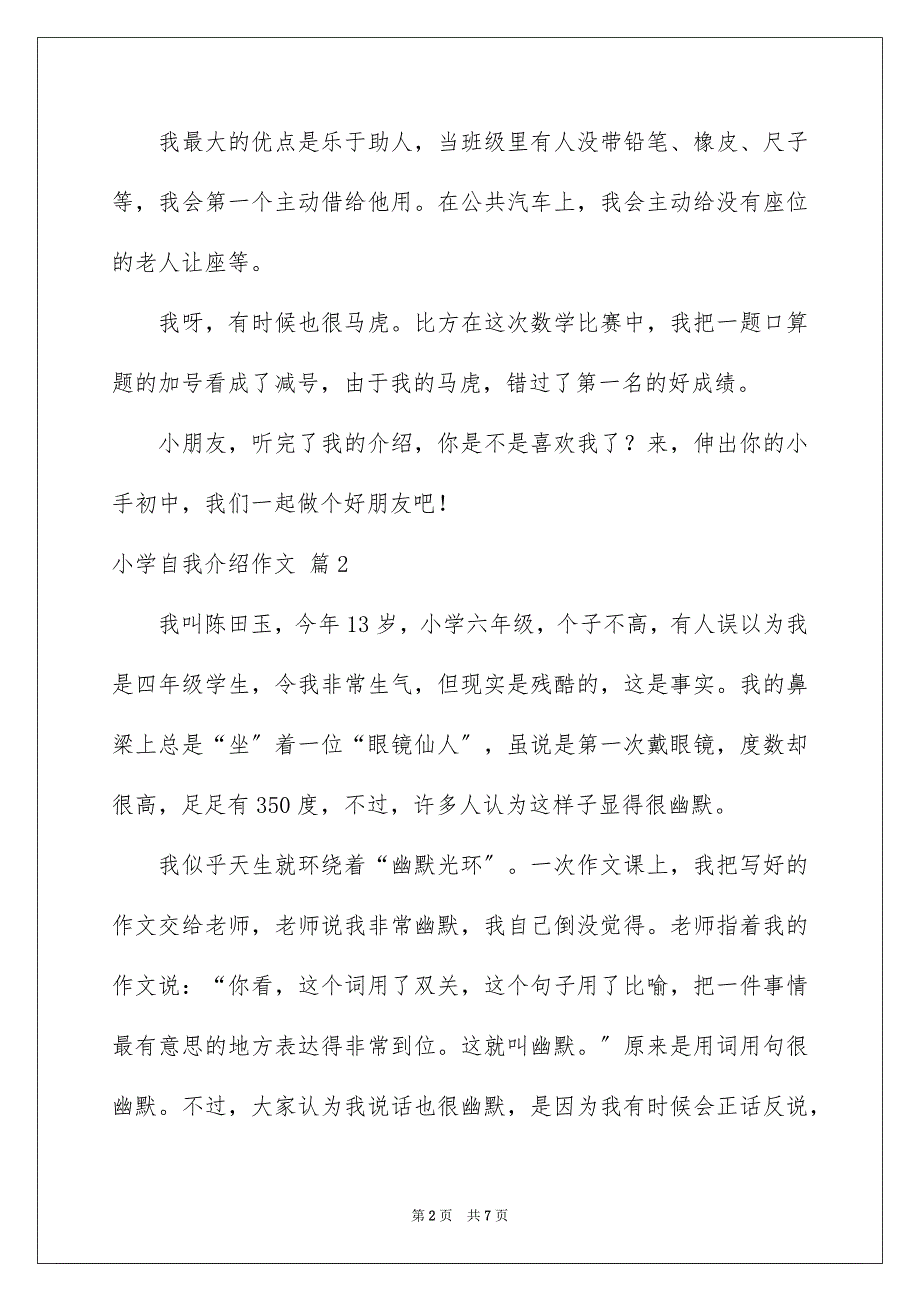 我最大的优点是乐于助人，当班级里有人没带铅笔、橡皮、尺子
等，我会第一个主动借给他用。在公共汽车上，我会主动给没有座位
的老人让座等。
我呀，有时候也很马虎。比方在这次数学比赛中，我把一题口算
题的加号看成了减号，由于我的马虎，错过了第一名的好成绩。
小朋友，听完了我的介绍，你是不是喜欢我了？来，伸出你的小
手初中，我们一起做个好朋友吧！
小学自我介绍作文 篇2
我叫陈田玉，今年13岁，小学六年级，个子不高，有人误以为我
是四年级学生，令我非常生气，但现实是残酷的，这是事实。我的鼻
梁上总是“坐〞着一位“眼镜仙人〞，虽说是第一次戴眼镜，度数却
很高，足足有350度，不过，许多人认为这样子显得很幽默。
我似乎天生就环绕着“幽默光环〞。一次作文课上，我把写好的
作文交给老师，老师说我非常幽默，我自己倒没觉得。老师指着我的
作文说：“你看，这个词用了双关，这个句子用了比喻，把一件事情
最有意思的地方表达得非常到位。这就叫幽默。〞原来是用词用句很
幽默。不过，大家认为我说话也很幽默，是因为我有时候会正话反说，
第2页 共7页